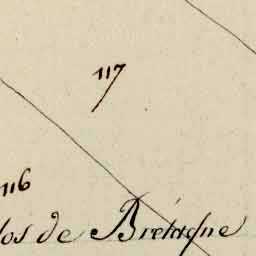 117
116
los de Bretagne